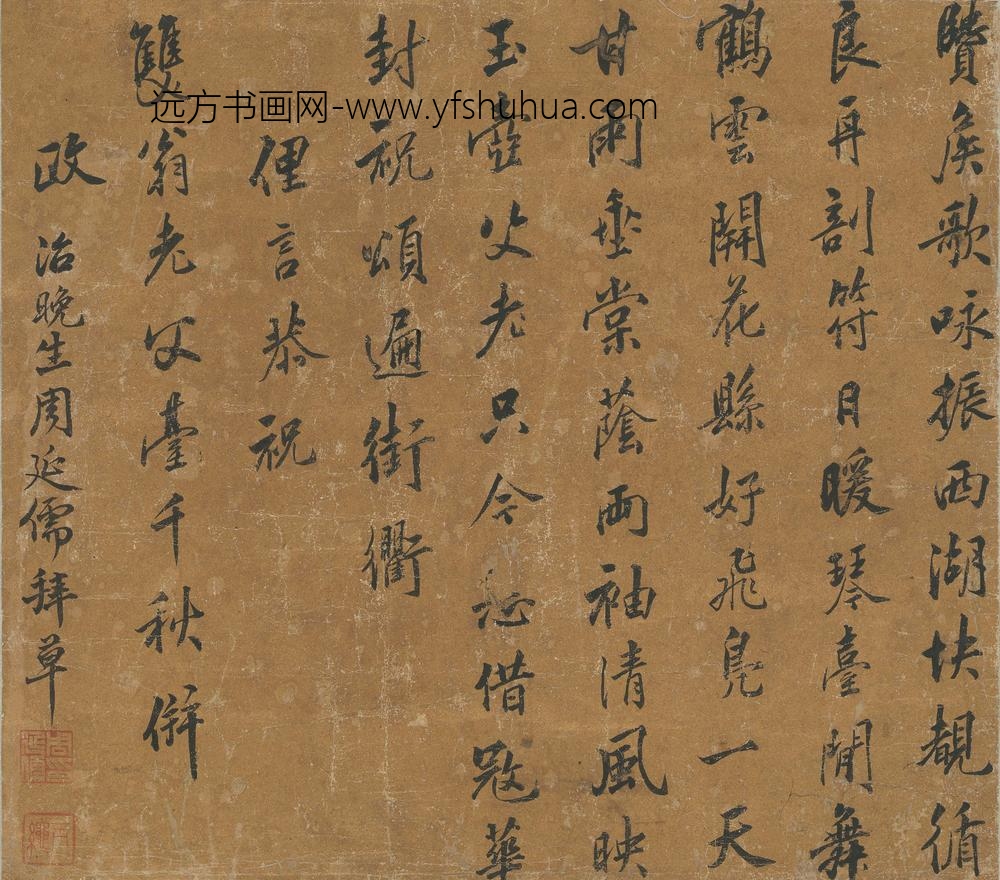 侯歌咏振西湖快覩循
良再剖符日暖琴臺閒舞
鶴雲開花縣好飛凫一天
甘雨垂棠蔭兩袖清風映
玉壺父老只今借寇華
封祝頌遍街衢
俚言恭祝
雙翁老父臺千秋併
政 治晚生周延儒拜草
玉繩
远方书画网-www.yfshuhua.com